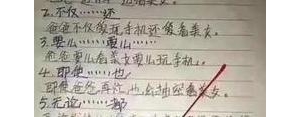 看美女。
2.不仅……还
爸爸不仅像玩手机还像看美女。
3.要么……要么……
爸爸要么看美女要么玩手机。
4.即使……也
即使爸爸再忙,也会抽空看美女。
5.无论……都